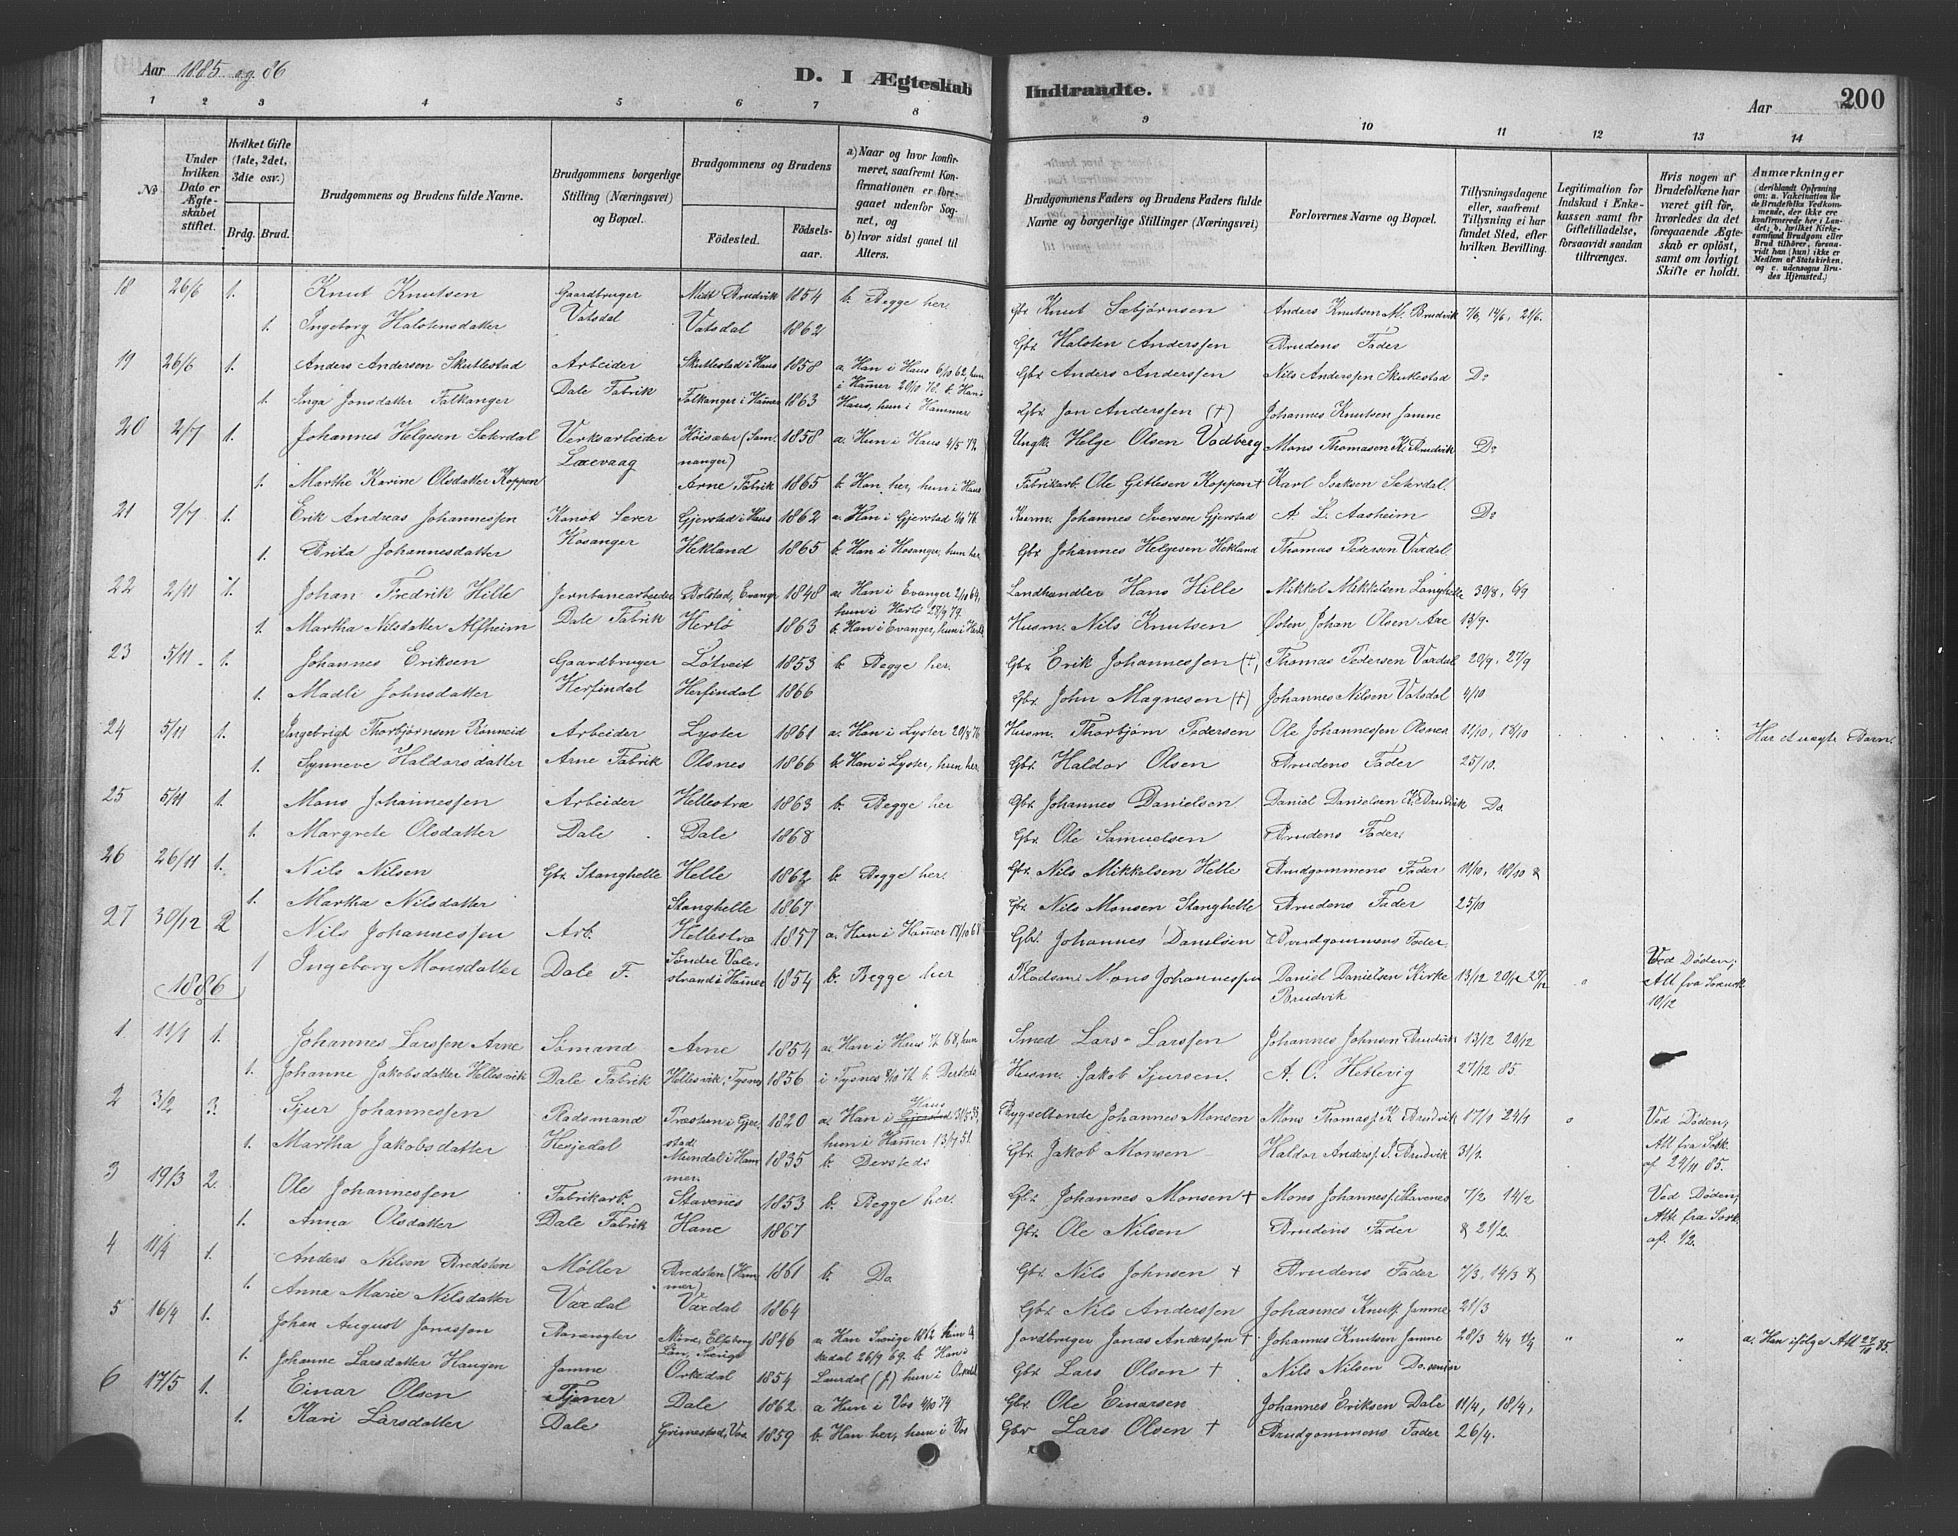 Aar 1885 og 86
D. I Ægteskab Indtraadte.
Aar
200
1 2 3 4 5 6 7 8 9 10 11 12 13 14
No
Under hvilken Dato er Ægteskabet stiftet.
Hvilket Gifte (1ste, 2det, 3die osv.)
Brdg. Brud.
Brudgommens og Brudens fulde Navne.
Brudgommens borgerlige Stilling (Næringsvei) og Bopæl.
Brudgommens og Brudens
Fødested. Fødselsaar.
a) Naar og hvor konfirmeret, saafremt Konfirmationen er foregaaet udenfor Sognet, og b) hvor sidst gaaet til Alters.
Brudgommens Faders og Brudens Faders fulde Navne og borgerlige Stillinger (Næringsvei)
Forlovernes Navne og Bopæl.
Tillysningsdagene eller, saafremt Tillysning ei har fundet Sted, efter hvilken Bevilling.
Legitimation for Indskud i Enkekassen samt for Giftetilladelse, forsaavidt saadan tiltrænges.
Hvis nogen af Brudefolkene har været gift før, hvorledes da det foregaaende Ægteskab er opløst, samt om lovligt Skifte er holdt.
Anmærkninger
18 26/6 1. Knut Knutsen Gaardbruger Midt Brudvik 1854 b. Begge her. Gbr Knut Sæbjørnsen Anders Knutsen M. Brudvik 7/6, 14/6, 21/6.
1. Ingeborg Halstensdatter Vatsdal Vatsdal 1862 Gbr. Halsten Anderssen Brudens Fader
19 26/6 1. Anders Andersen Skutlestad Arbeider Skutlestad i Haus 1858 a. Han i Haus 6/10 62, hun Gbr. Anders Anderssen Nils Anderssen Skutlestad Do
1. Inga Jonsdatter Falkanger Dale Fabrik Falkanger i Hamer 1863 i Hamer 20/10 78. b. Han i Haus, hun i Hammer Gbr. Jon Anderssen (+) Johannes Knutsen Jamne
20 2/7 1. Johannes Helgesen Sekrdal Verksarbeider Høisæter (Samnanger) 1858 a. Hun i Haus 4/5 79. Ungk. Helge Olsen Vadberg Mons Thomasen K. Brudvik Do
1. Marthe Karine Olsdatter Koppen Laxevaag Arne Fabrik 1865 b. Han her, hun i Haus Fabrikarb. Ole Gitlesen Koppen + Karl Isaksen Sekrdal.
21 9/7 1. Erik Andreas Johannessen Kanst. Lærer Gjerstad i Haus 1862 a. Han i Gjerstad 1/10 76. Husm. Johannes Iversen Gjerstad A. L. Aasheim Do
1. Brita Johannesdatter Hosanger Hekland 1865 b. Han i Hosanger, hun her. Gbr. Johannes Helgesen Hekland Thomas Pedersen Vaxdal
22 2/11 1. Johan Fredrik Hille Jernbanearbeider Bolstad, Evanger 1848 a. Han i Evanger 2/10 64, Landhandler Hans Hille Mikkel Mikkelsen Langhelle 30/8, 6/9
1. Martha Nilsdatter Alfheim Dale Fabrik Herlø 1863 hun i Herlø 28/9 79. b. Han i Evanger, hun i Herlø Husm. Nils Knutsen Østen Johan Olsen Axe 13/9.
23 5/11 1. Johannes Eriksen Gaardbruger Løtveit 1853 b. Begge her. Gbr. Erik Johannessen (+) Thomas Pedersen Vaxdal 20/9, 27/9
1. Madli Johnsdatter Herfindal Herfindal 1866 Gbr. John Magnesen (+) Johannes Nilsen Vatsdal 4/10
24 5/11 1. Ingebrigt Thorbjørnsen Rønneid Arbeider Lyster 1861 a. Han i Lyster 20/8 76 Husm. Thorbjørn Pedersen Ole Johannessen Olsnes 11/10, 18/10 Har et uægte Barn.
1. Synneve Haldorsdatter Arne Fabrik Olsnes 1866 b. Han i Lyster, hun her. Gbr. Haldor Olsen Brudens Fader 25/10.
25 5/11 1. Mons Johannessen Arbeider Hellestræ 1863 b. Begge her Gbr. Johannes Danielsen Daniel Danielsen K. Brudvik Do.
1. Margrete Olsdatter Dale Dale 1868 Gbr. Ole Samuelsen Brudens Fader
26 26/11 1. Nils Nilsen Gbr. Stanghelle Helle 1862 b. Begge her. Gbr. Nils Mikkelsen Helle Brudgommens Fader 11/10, 18/10 &
1. Martha Nilsdatter Stanghelle 1867 Gbr. Nils Monsen Stanghelle Brudens Fader 25/10
27 30/12 2 Nils Johannessen Arb. Hellestræ 1857 a. Hun i Hamer 18/10 68 Gbr. Johannes Danielsen Brudgommens Fader.
1 Ingeborg Monsdatter Dale F. Søndre Valestrand i Hamer 1854 b. Begge her Pladsm. Mons Johannessen Daniel Danielsen Kirke Brudvik 13/12 20/12 27/12 Ved Døden; Att fra 10/12
1886
1 11/1 1. Johannes Larssen Arne Sømand Arne 1854 a. Han i Haus 68, hun Smed Lars Larssen Johannes Johnsen Brudvik 13/12 20/12
1. Johanne Jakobsdatter Hellesvik Dale Fabrik Hellesvik, Tysnes 1856 i Tysnes b. Dersteds Husm. Jakob Sjursen. A. O. Hetlevig 27/12 85.
2 3/2 3. Sjur Johannessen Pladsmand Træsteen i Gjerstad 1820 a. Han i Haus Gjerstad Bygselbonde Johannes Monsen Mons Thomass. K. Brudvik 17/1 24/1 Ved Døden;
1. Martha Jakobsdatter Hesjedal Mundal i Hammer. 1835 hun i Hamer 13/4 51. b. Dersteds Gbr. Jakob Monsen Haldor Anders. I. Brudvik 31/1. Att fra Sokr. af 24/11 85.
3 19/3 2. Ole Johannessen Fabrikarb. Stavenes 1853 b. Begge her. Gbr. Johannes Monsen + Mons Johannes. Stavenes 7/2 14/2 Ved Døden;
1. Anna Olsdatter Dale Fabrik Hane 1867 Gbr. Ole Nilsen Brudens Fader & 21/2. Att. fra Sokr. af. 1/2.
4 11/4 1. Anders Nilsen Bredsten Møller Bredsten (Hammer) 1861 b. Do. Gbr. Nils Johnsen + Brudens Fader 7/3, 14/3 &
1. Anna Marie Nilsdatter Vaxdal Vaxdal 1864 Gbr. Nils Anderssen Johannes Knuts. Jamne 21/3
5 16/4 1. Johan August Jonasson Elfsborg Län, Sverige 1846 a. Han Sverige 1862 hun Orkedal 26/9 69. b. Han i Jordbruger Jonas Anderssen + Johannes Knutsen Jamne 28/3 4/4 a. Han ifølge Att 85.
1. Johanne Larsdatter Haugen Jamne Orkedal 1854 hun i Orkedal Gbr. Lars Olsen + Nils Nilsen Do. senior
6 17/5 1. Einar Olsen Tjener Dale 1862 a Hun i Vos 4/10 74 Gbr. Ole Einarsen Johannes Eriksen Dale 11/4, 18/4,
1. Kari Larsdatter Dale Grimestad, Vos 1859 b. Han her, hun i Vos Gbr Lars Olsen + Brudgommens Fader 26/4.